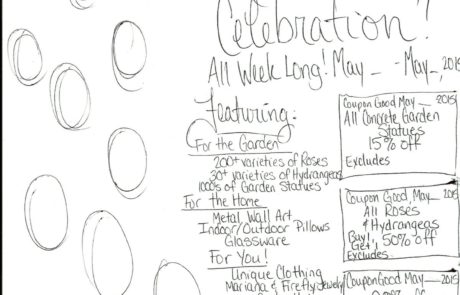 Celebration!
All Week Long! May _ - May _, 2015
Featuring:
For the Garden
200+ varieties of Roses
30+ varieties of Hydrangeas
1000s of Garden Statues
For the Home
Metal Wall Art
Indoor/Outdoor Pillows
Glassware
For You!
Unique Clothing
Mariana & Firefly Jewelry
Coupon Good May __ 2015
All Concrete Garden
Statues
15% off
Excludes
Coupon Good, May __ 2015
All Roses
& Hydrangeas
Buy 1,
Get 1 50% off
Excludes
Coupon Good May __ 2015